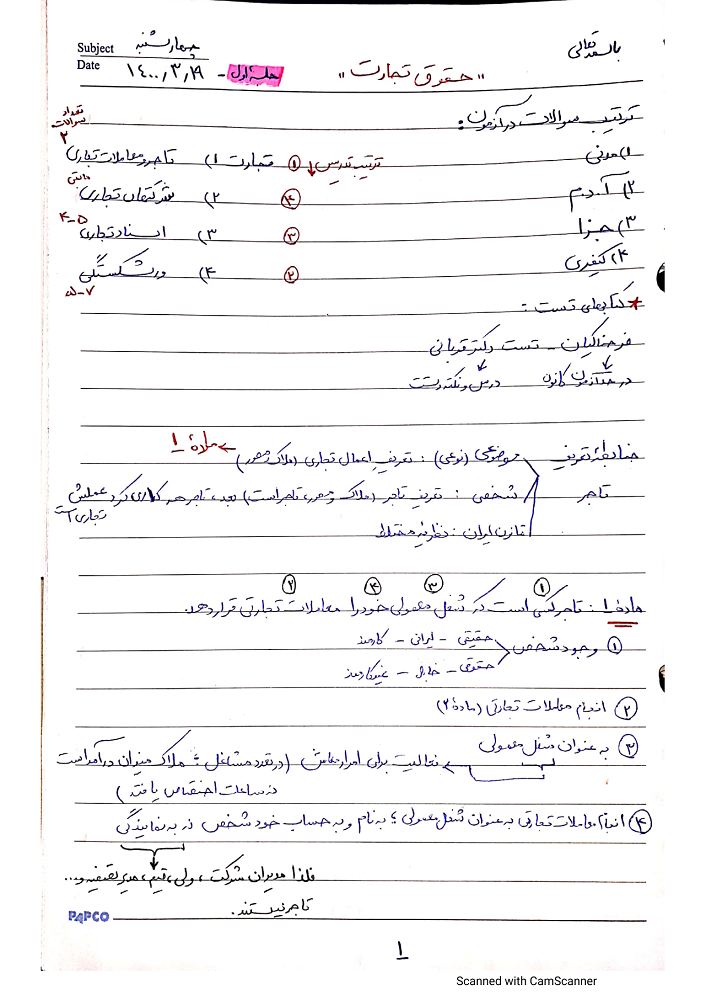 باسمه تعالی
Subject چهارشنبه
Date ۱۴۰۰/۳/۱۹ - جلسه اول
"حقوق تجارت"
ترتیب سوالات در آزمون:
تعداد سوالات
۱) مدنی ترتیب تدریس ① تجارت ۱) تاجر و معاملات تجاری ۲
۲) آ.د.م ④ ۲) شرکتهای تجاری
۳) جزا ③ ۳) اسناد تجاری ۴-۵
۴) کیفری ② ۴) ورشکستگی ۵-۷
* کتابهای تست:
فرحناکیان - تست دکتر قربانی
در حد آزمون کانون درس و نکته و تست
ضابطه تعریف موضوعی (نوعی): تعریف اعمال تجاری (ملاک و محور) ← ماده ۱
تاجر شخصی: تعریف تاجر (ملاک و محور، تاجر است) بعد، تاجر هر کاری کرد عملش تجاری است
قانون ایران: نظریه مختلط
ماده ۱: تاجر کسی است که شغل معمولی خود را معاملات تجارتی قرار دهد.
① ③ ④ ②
① وجود شخص حقیقی - ایرانی - کارمند
حقوقی - خارجی - غیرکارمند
② انجام معاملات تجارتی (ماده ۲)
③ به عنوان شغل معمولی
فعالیت برای امرار معاش (در تعدد مشاغل: ملاک میزان درآمد است
نه ساعات اختصاص یافته)
④ انجام معاملات تجارتی به عنوان شغل معمولی؛ به نام و به حساب خود شخص نه به نمایندگی
فلذا مدیران شرکت، ولی، قیم، مدیر تصفیه و...
تاجر نیستند.
PAPCO
۱
Scanned with CamScanner